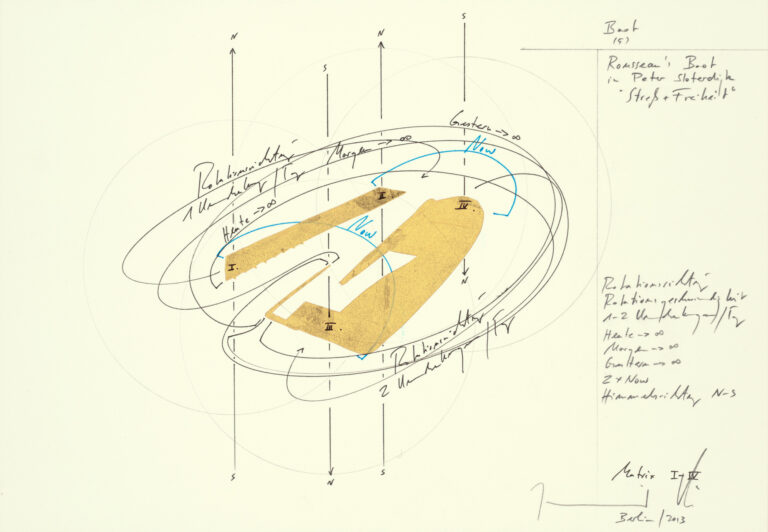 Boot
(5)
Rousseau's Boot
in Peter Sloterdijk
"Streß + Freiheit"
N
S
N
S
Gestern → ∞
Now
Morgen → ∞
Rotationsrichtung
1 Umdrehung/Tag
Heute → ∞
Now
I.
II.
III.
IV.
N
Rotationsrichtung
2 Umdrehungen/Tag
S
N
S
Rotationsrichtung
Rotationsgeschwindigkeit
1-2 Umdrehungen/Tag
Heute → ∞
Morgen → ∞
Gestern → ∞
2 x Now
Himmelsrichtung N-S
Matrix I-IV
Berlin/2013